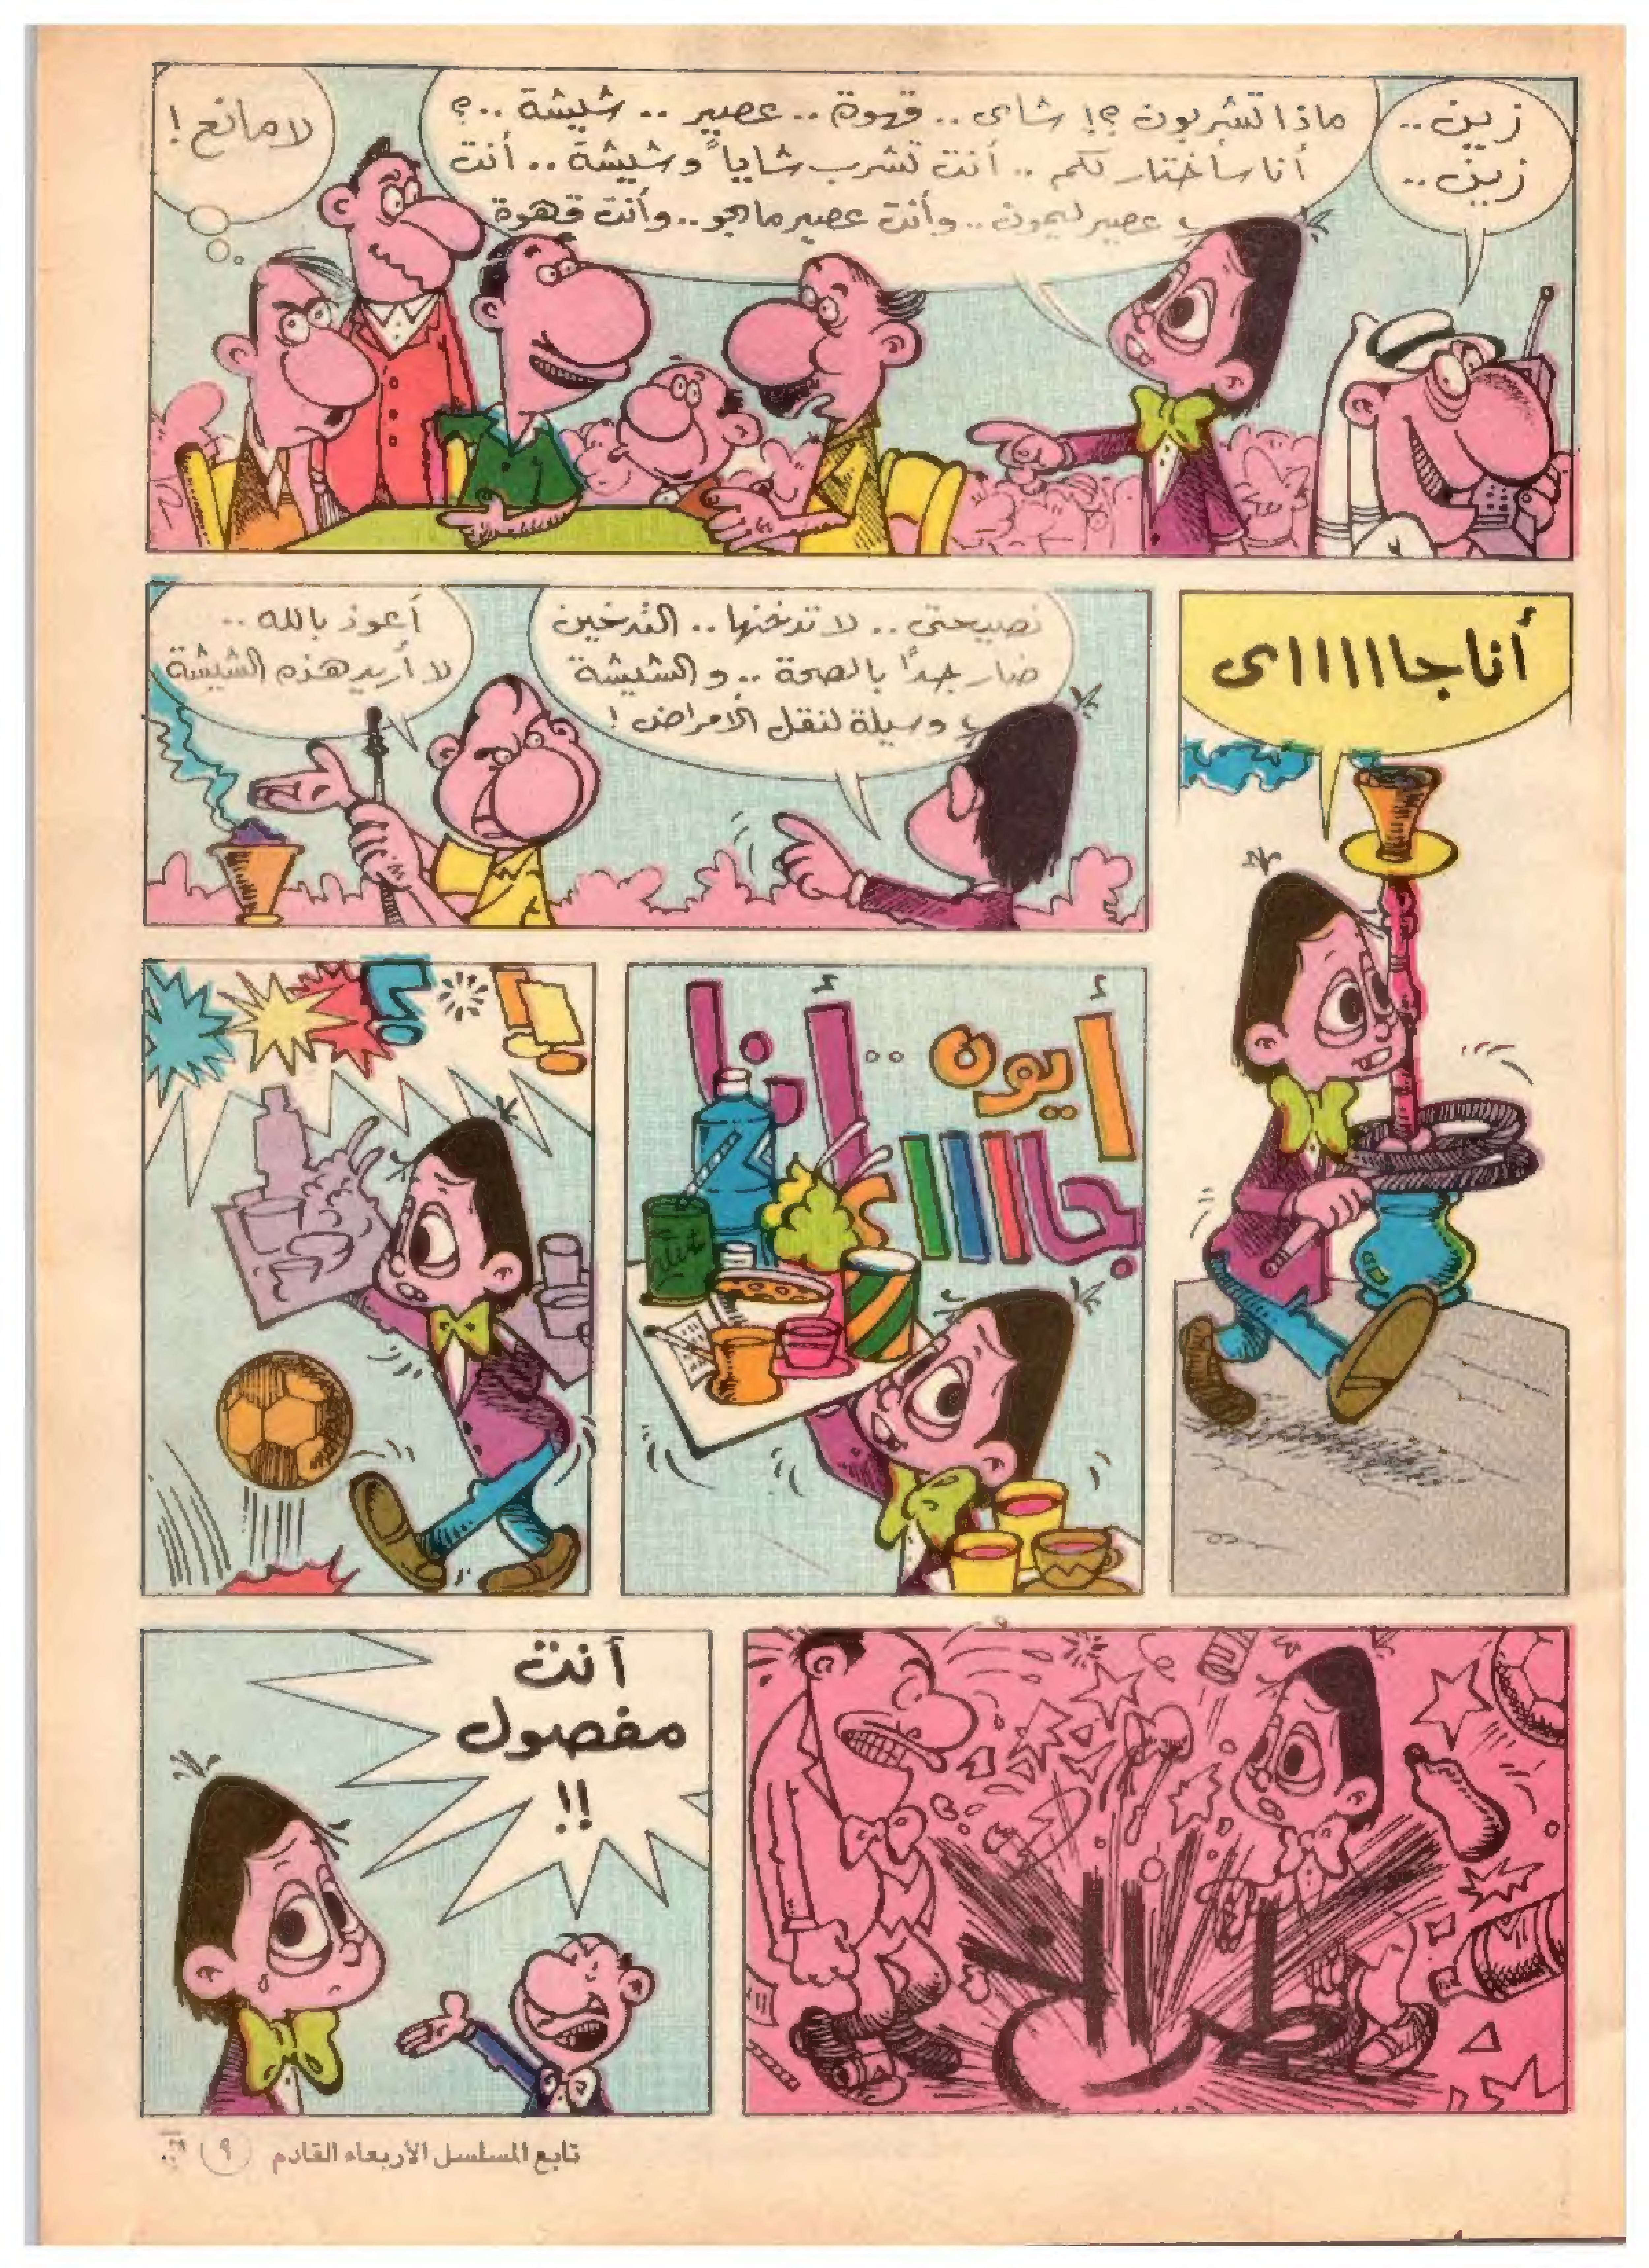 زين..
زين..
ماذا تشربون ؟! شاى .. قهوة .. عصير .. شيشة ..؟
أنا سأختار لكم .. أنت تشرب شاياً وشيشة .. أنت
عصير ليمون .. وأنت عصير مانجو .. وأنت قهوة
لا مانع !
أنا جااااااى
نصيحتى .. لا تدخنها .. التدخين
ضار جداً بالصحة .. والشيشة
وسيلة لنقل الأمراض !
أعوذ بالله ..
لا أريد هذه الشيشة
أيون .. أنا
جااااااى
؟ !!
طااااخ
أنت
مفصول
!!
تابع المسلسل الأربعاء القادم
٩